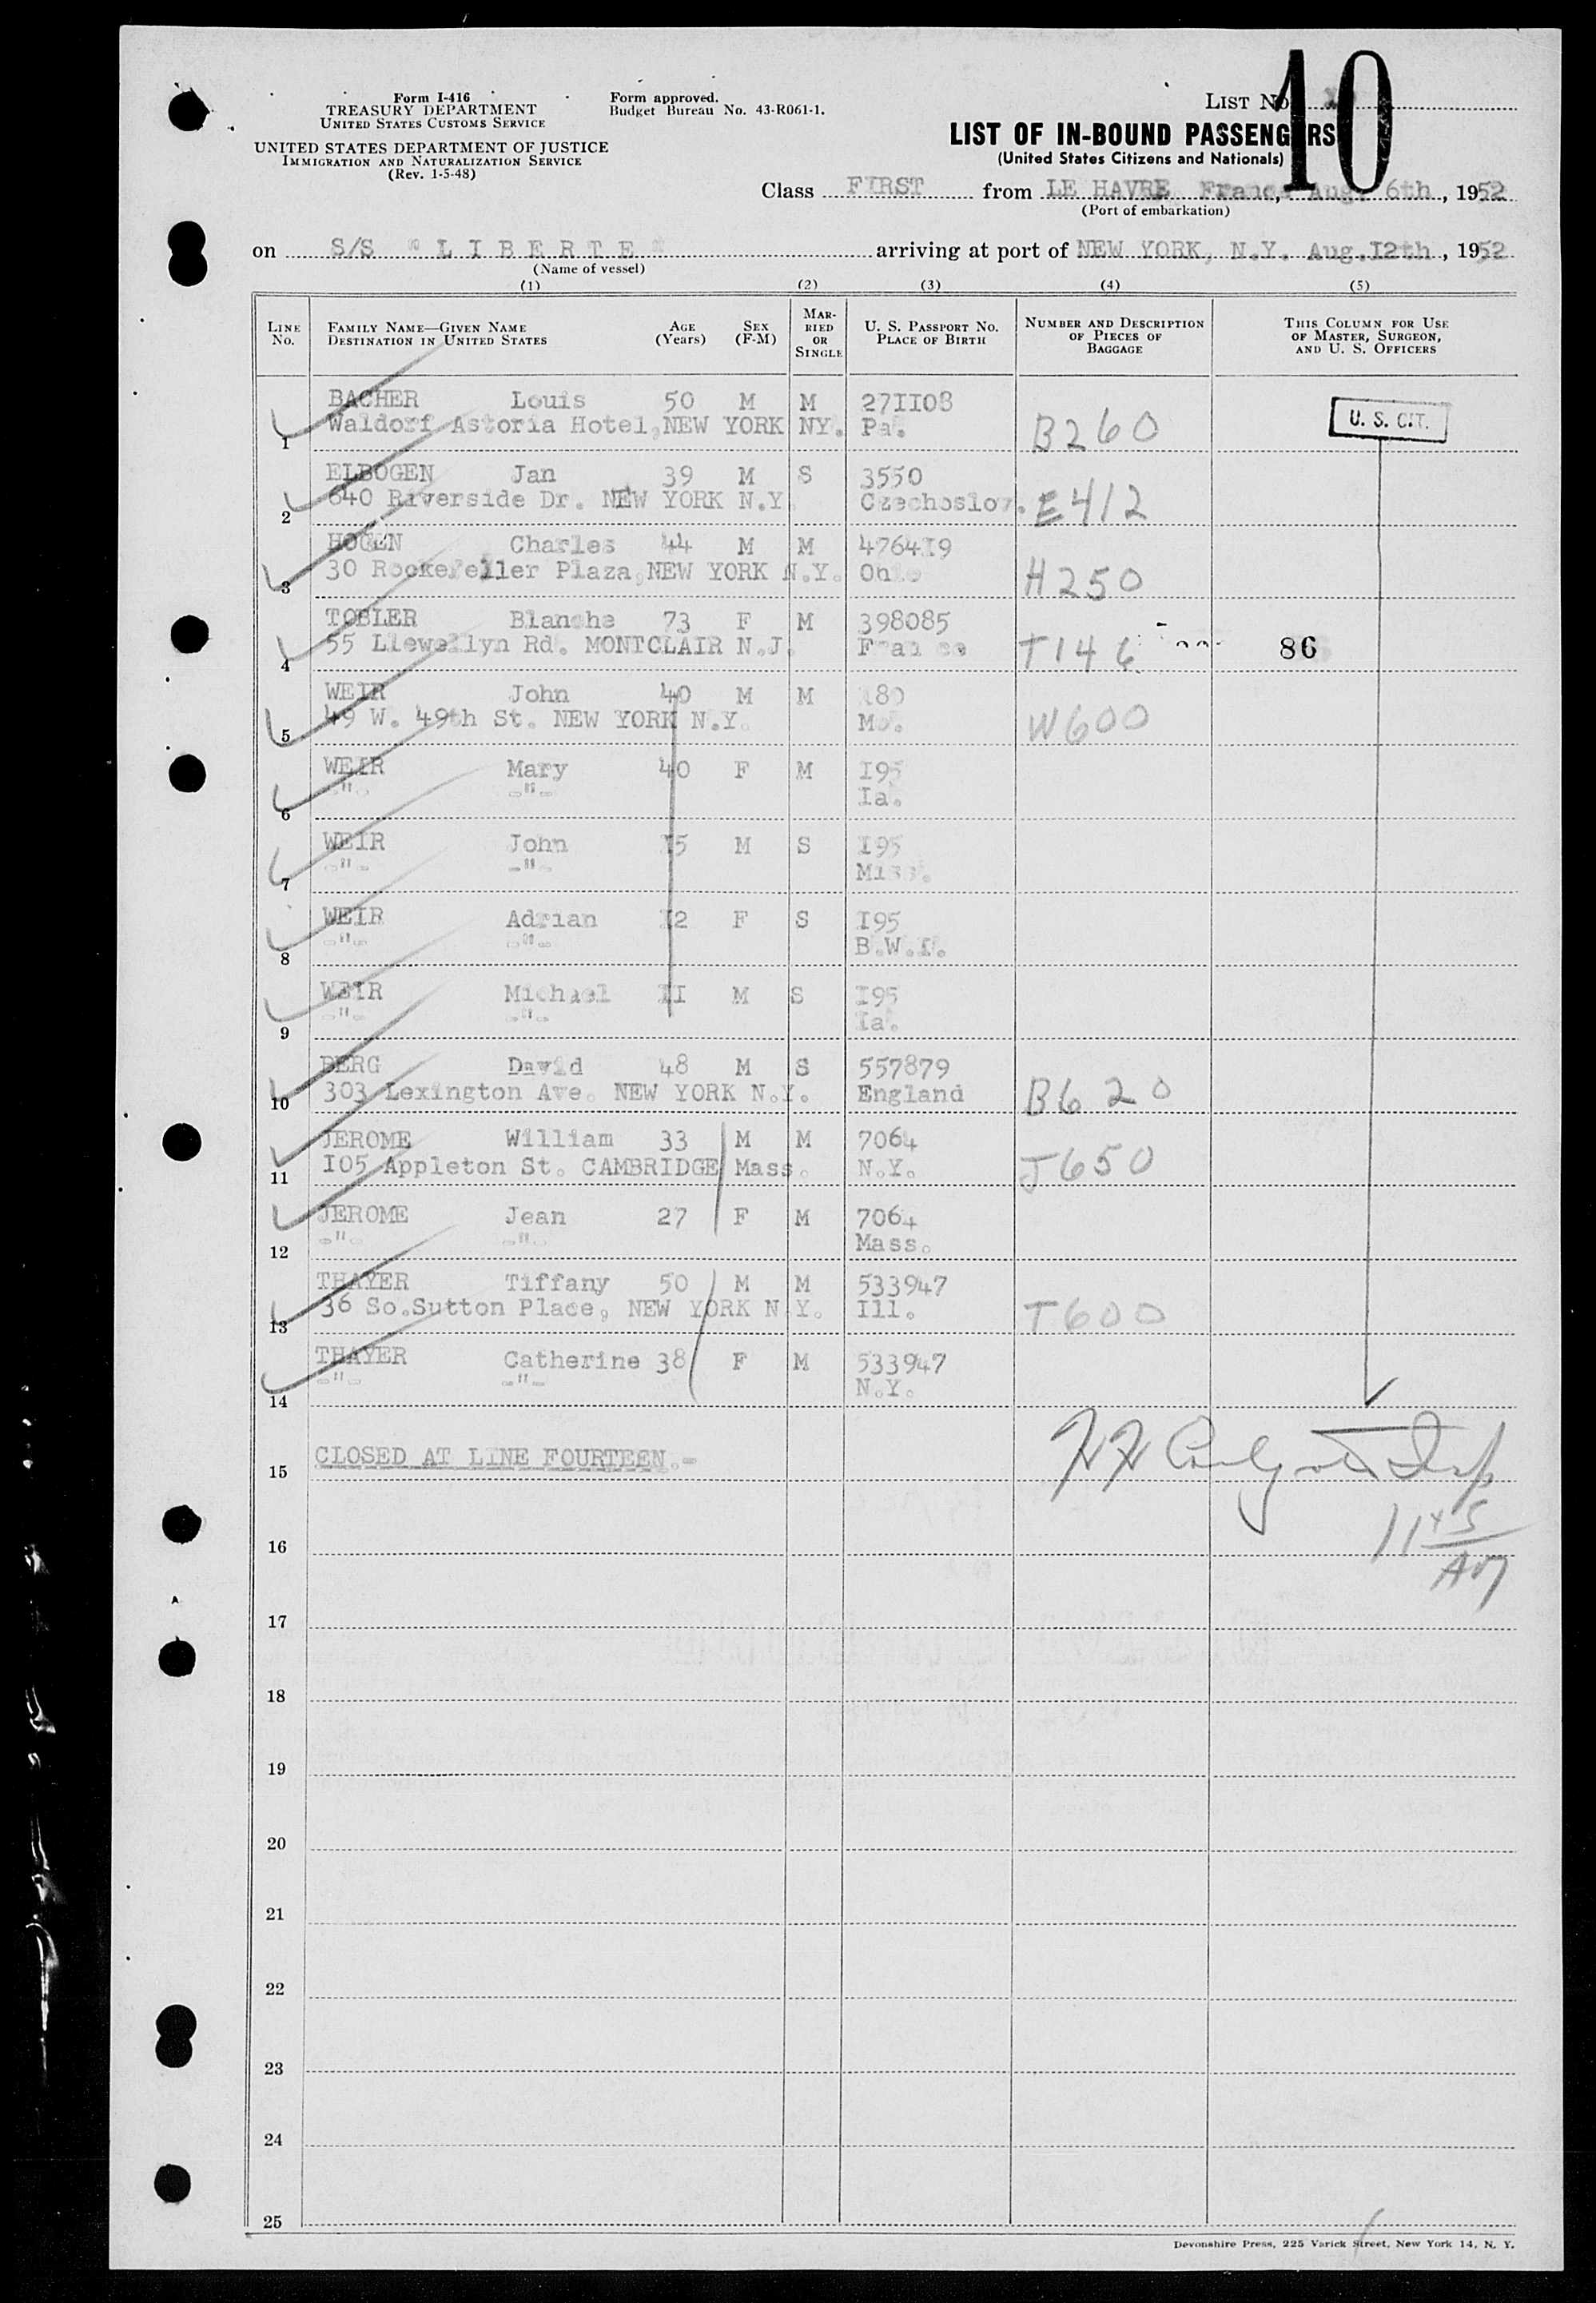 Form I-416
TREASURY DEPARTMENT
UNITED STATES CUSTOMS SERVICE
UNITED STATES DEPARTMENT OF JUSTICE
IMMIGRATION AND NATURALIZATION SERVICE
(Rev. 1-5-48)
Form approved.
Budget Bureau No. 43-R061-1.
LIST No.
10
LIST OF IN-BOUND PASSENGERS
(United States Citizens and Nationals)
Class FIRST from LE HAVRE, France, Aug. 6th, 1952
(Port of embarkation)
on S/S "LIBERTE" arriving at port of NEW YORK, N.Y. Aug.I2th, 1952
(Name of vessel)
(1) (2) (3) (4) (5)
LINE No. FAMILY NAME—GIVEN NAME DESTINATION IN UNITED STATES AGE (Years) SEX (F-M) MARRIED OR SINGLE U. S. PASSPORT No. PLACE OF BIRTH NUMBER AND DESCRIPTION OF PIECES OF BAGGAGE THIS COLUMN FOR USE OF MASTER, SURGEON, AND U. S. OFFICERS
BACHER Louis 50 M M 27II08 U. S. CIT.
1 Waldorf Astoria Hotel,NEW YORK NY. Pa. B260
ELBOGEN Jan 39 M S 3550
2 640 Riverside Dr. NEW YORK N.Y. Czechoslov. E412
HOGEN Charles 44 M M 4764I9
3 30 Rockefeller Plaza,NEW YORK N.Y. Ohio H250
TOBLER Blanche 73 F M 398085
4 55 Llewellyn Rd. MONTCLAIR N.J. France T146 86
WEIR John 40 M M
5 49 W. 49th St. NEW YORK N.Y. Mo. W600
WEIR Mary 40 F M I95
6 -"- -"- Ia.
WEIR John I5 M S I95
7 -"- -"- Miss.
WEIR Adrian I2 F S I95
8 -"- -"- B.W.I.
WEIR Michael II M S I95
9 -"- -"- Ia.
BERG David 48 M S 557879
10 303 Lexington Ave. NEW YORK N.Y. England B620
JEROME William 33 M M 7064
11 I05 Appleton St. CAMBRIDGE Mass. N.Y. J650
JEROME Jean 27 F M 7064
12 -"- -"- Mass.
THAYER Tiffany 50 M M 533947
13 36 So.Sutton Place, NEW YORK N.Y. Ill. T600
THAYER Catherine 38 F M 533947
14 -"- -"- N.Y.
15 CLOSED AT LINE FOURTEEN.-
16
11 45
AM
17
18
19
20
21
22
23
24
25
Devonshire Press, 225 Varick Street, New York 14, N. Y.